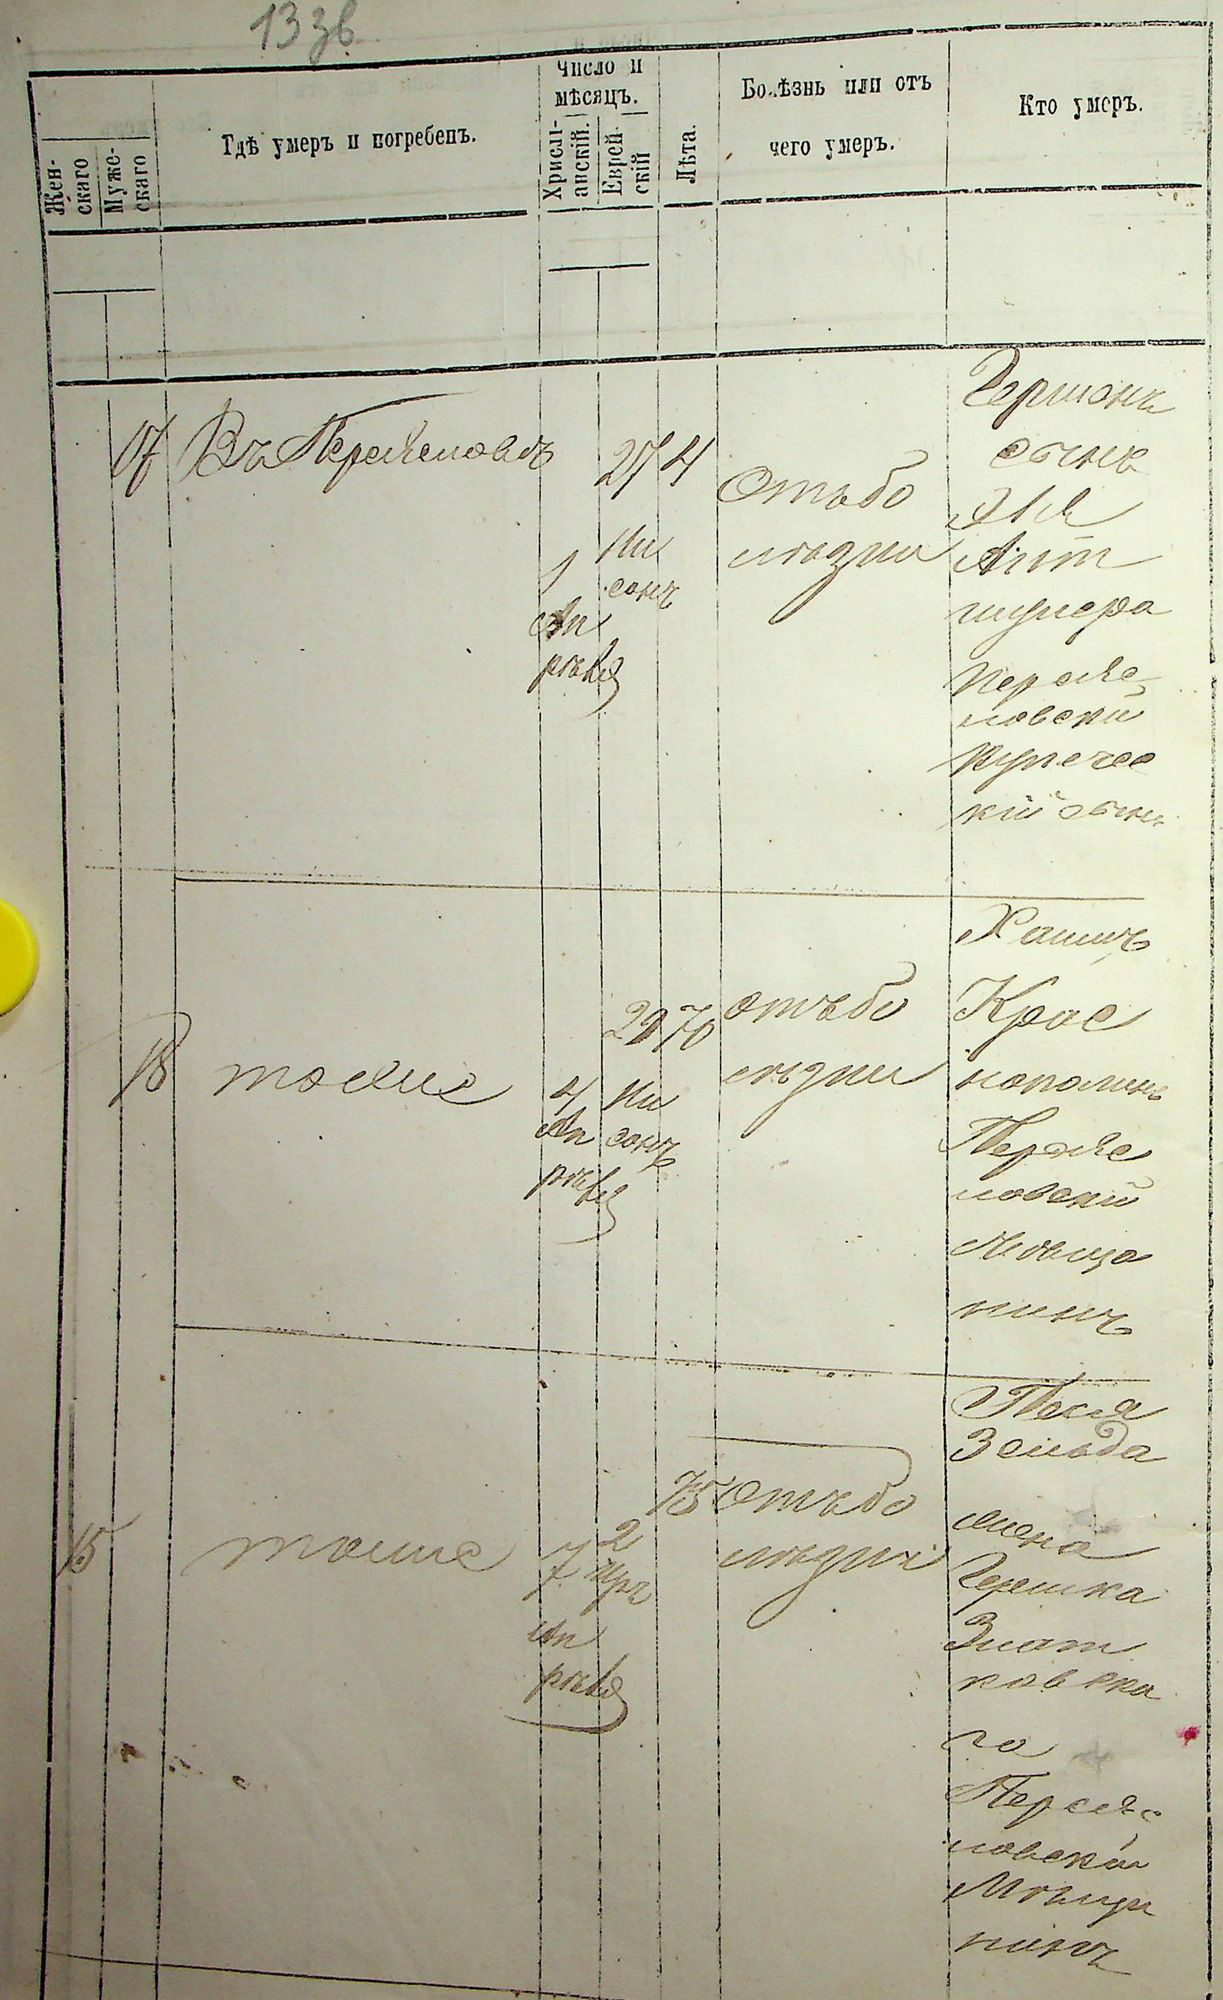 13 зв
Жен-
скаго
Муже-
скаго
Гдѣ умеръ и погребенъ.
Число и
мѣсяцъ.
Христі-
анскій.
Еврей-
скій
Лѣта.
Болѣзнь или отъ
чего умеръ.
Кто умеръ.
17
Въ Переяславлѣ
1
Ап
рѣля
27
Ни
санъ
4
Отъ бо
лѣзни
Гершонъ
сынъ
Переяс
лавскій
купечес
кій сынъ
18
тоже
4
Ап
рѣля
29
Ни
санъ
70
отъ бо
лѣзни
Хаимъ
Крас
нополинъ
Переяс
лавскій
мѣща
нинъ
15
тоже
7
Ап
рѣля
2
Иръ
75
Отъ бо
лѣзни
Песя
Зельда
жена
Гершка
Злат
ковска
го
Переяс
лавскій
Мѣща
нинъ